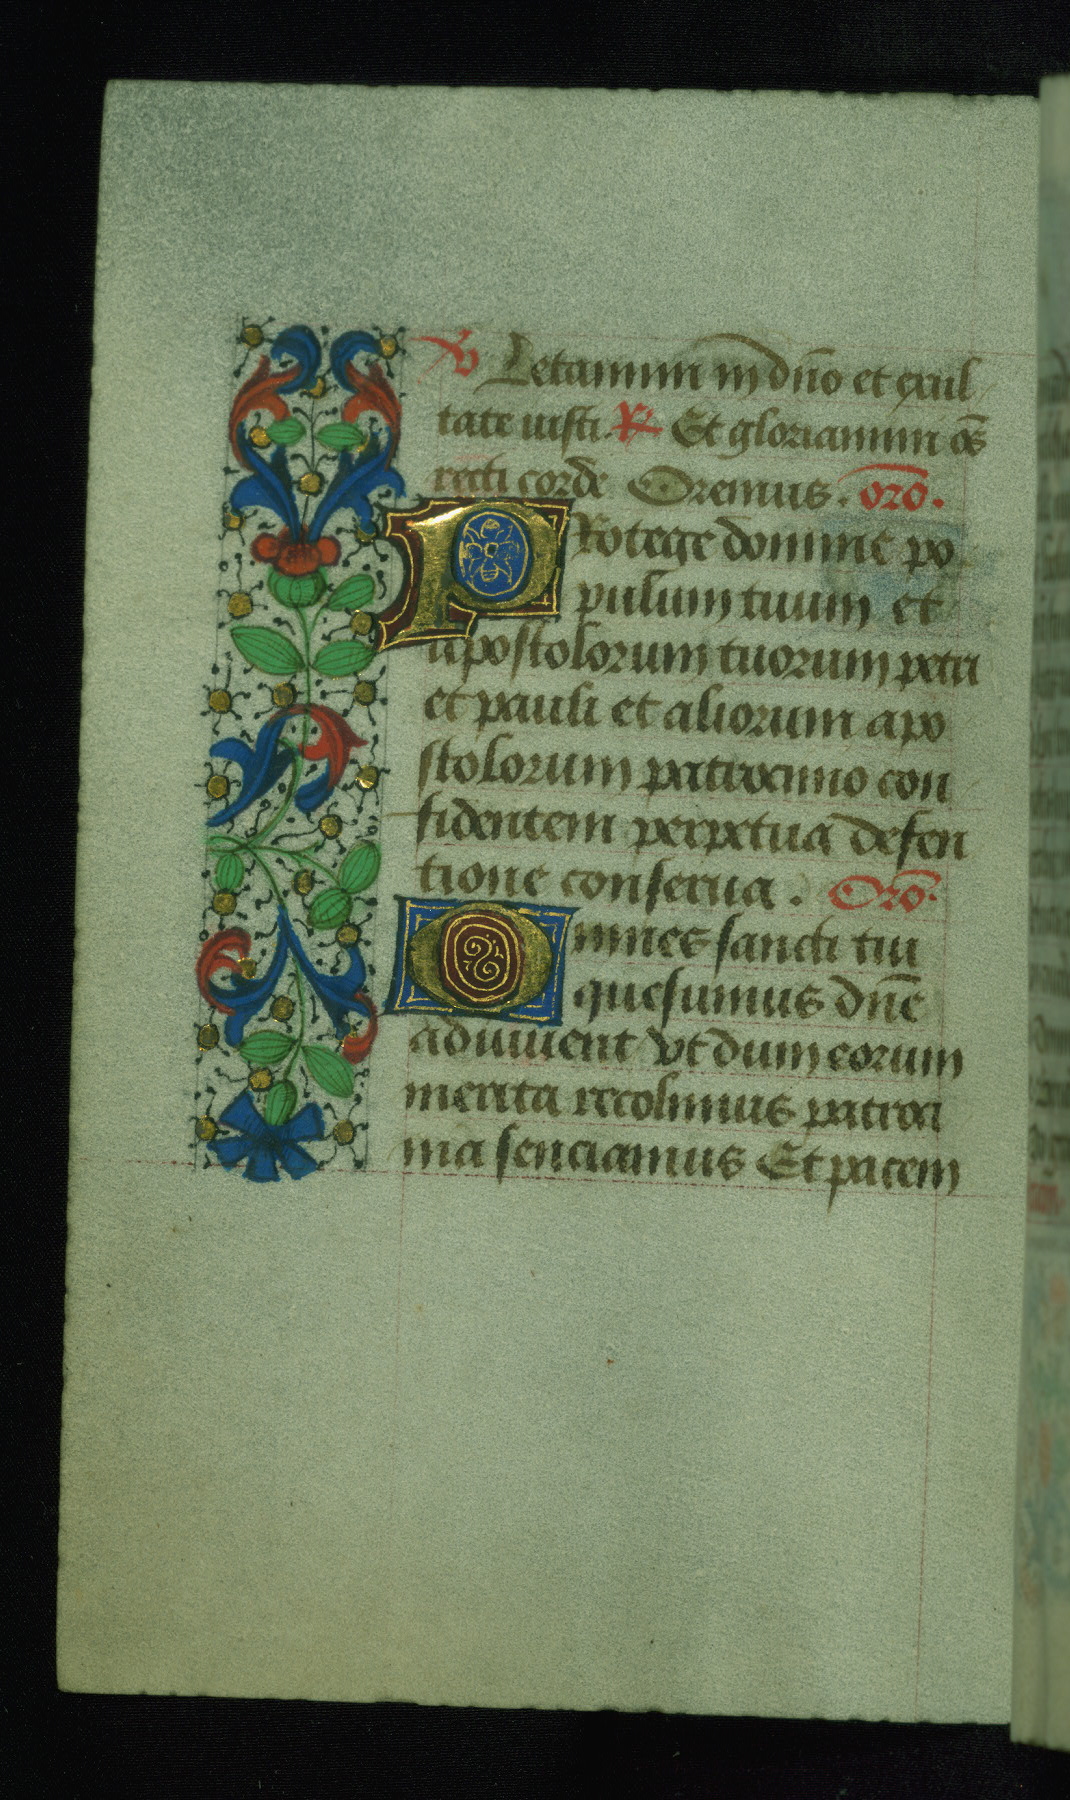 V Letamini in dño et exul
tate iusti. R Et gloriamini oẽs
recti corde Oremus. orō.
PRotege domine po
pulum tuum et
apostolorum tuorum petri
et pauli et aliorum apo
stolorum patrocinio con
fidentem perpetua defen
tione conserua. Orō.
Omnes sancti tui
quesumus dñe
adiuuent vt dum eorum
merita recolimus patroci
nia senciamus Et pacem